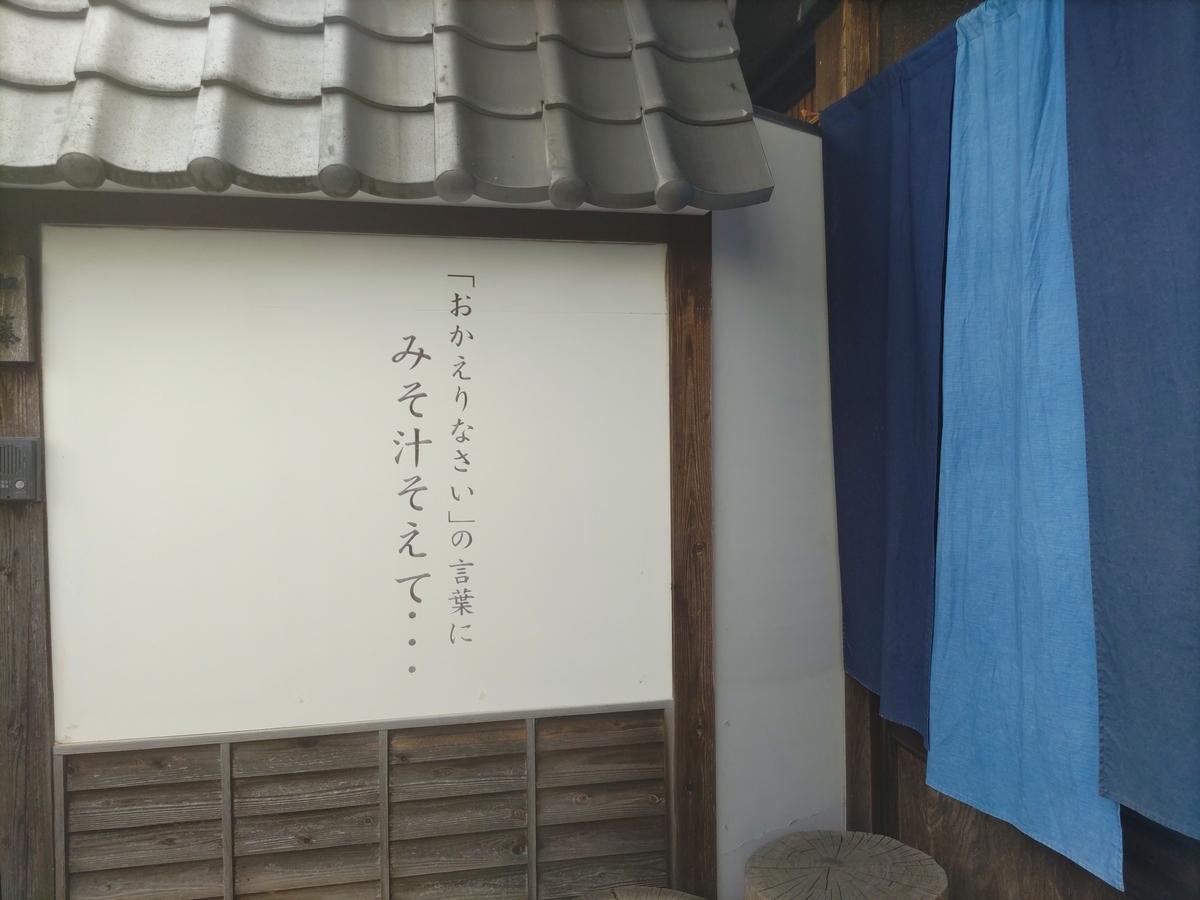 「おかえりなさい」の言葉に
みそ汁そえて・・・